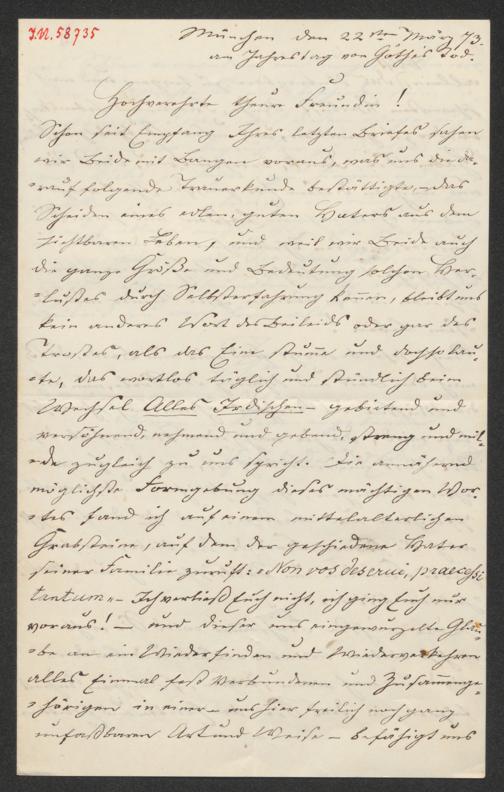 J.N. 58735
München den 22ten März 73.
am Jahrestag von Göthes Tod.
Hochverehrte theure Freundin!
Schon seit Empfang Ihres letzten Briefes sahen
wir Beide mit Bangen voraus, was uns die da-
=rauf folgende Trauerkunde bestättigte, – das
Scheiden eines edlen, guten Vaters aus dem
sichtbaren Leben, und weil wir Beide auch
die ganze Größe und Bedeutung solchen Ver-
=lustes durch Selbsterfahrung kennen, bleibt uns
kein anderes Wort des Beileids oder gar des
Trostes, als das Eine stumme und doch so lau-
=te, das wortlos täglich und stündlich beim
Wechsel Alles Irdischen – gebietend und
versöhnend, nehmend und gebend, streng und mil-
=de zugleich zu uns spricht. Die annähernd
möglichste Formgebung dieses mächtigen Wor-
=tes fand ich auf einem mittelalterlichen
Grabsteine, auf dem der geschiedene Vater
seiner Familie zuruft: "Non vos deserui, praecessi
tantum" – Ich verließ Euch nicht, ich ging Euch nur
voraus! – und dieser uns eingewurzelte Glau-
=be an ein Wiederfinden und Wiederverkehren
alles Einmal fest Verbundenen und Zusammenge-
=hörigen in einer – uns hier freilich noch ganz
unfaßbaren Art und Weise – befähigt uns